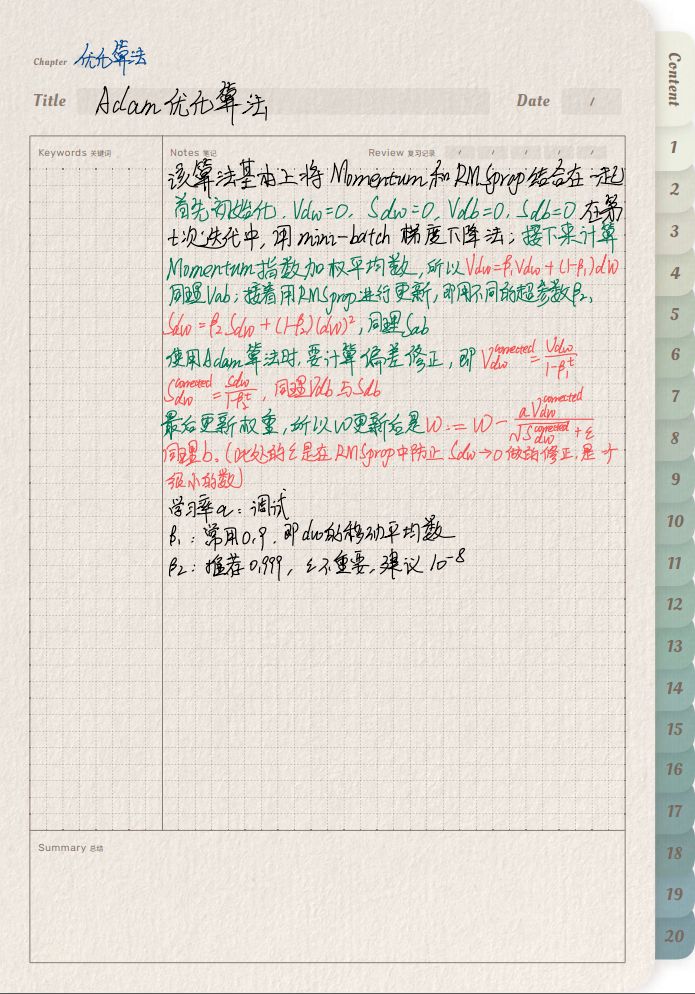 Chapter 优化算法
Title Adam优化算法 Date /
Content
Keywords 关键词 Notes 笔记 Review 复习记录 / / / / /
该算法基本上将Momentum和RMSprop结合在一起
首先初始化，Vdw=0，Sdw=0，Vdb=0，Sdb=0，在第
t次迭代中，用mini-batch梯度下降法；接下来计算
Momentum指数加权平均数，所以Vdw=β₁Vdw+(1-β₁)dw
同理Vdb；接着用RMSprop进行更新，即用不同的超参数β₂，
Sdw=β₂Sdw+(1-β₂)(dw)²，同理Sdb
使用Adam算法时，要计算偏差修正，即 V_dw^corrected = Vdw/(1-β₁^t)
S_dw^corrected = Sdw/(1-β₂^t)，同理Vdb与Sdb
最后更新权重，所以W更新后是W:=W- aV_dw^corrected/(√S_dw^corrected+ε)
同理b。(此处的ε是在RMSprop中防止Sdw→0做的修正，是个
很小的数)
学习率a：调试
β₁：常用0.9，即dw的移动平均数
β₂：推荐0.999，ε不重要，建议10⁻⁸
Summary 总结
1
2
3
4
5
6
7
8
9
10
11
12
13
14
15
16
17
18
19
20